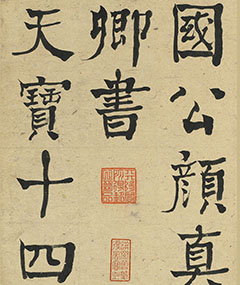 國公顔真
卿書
天寶十四